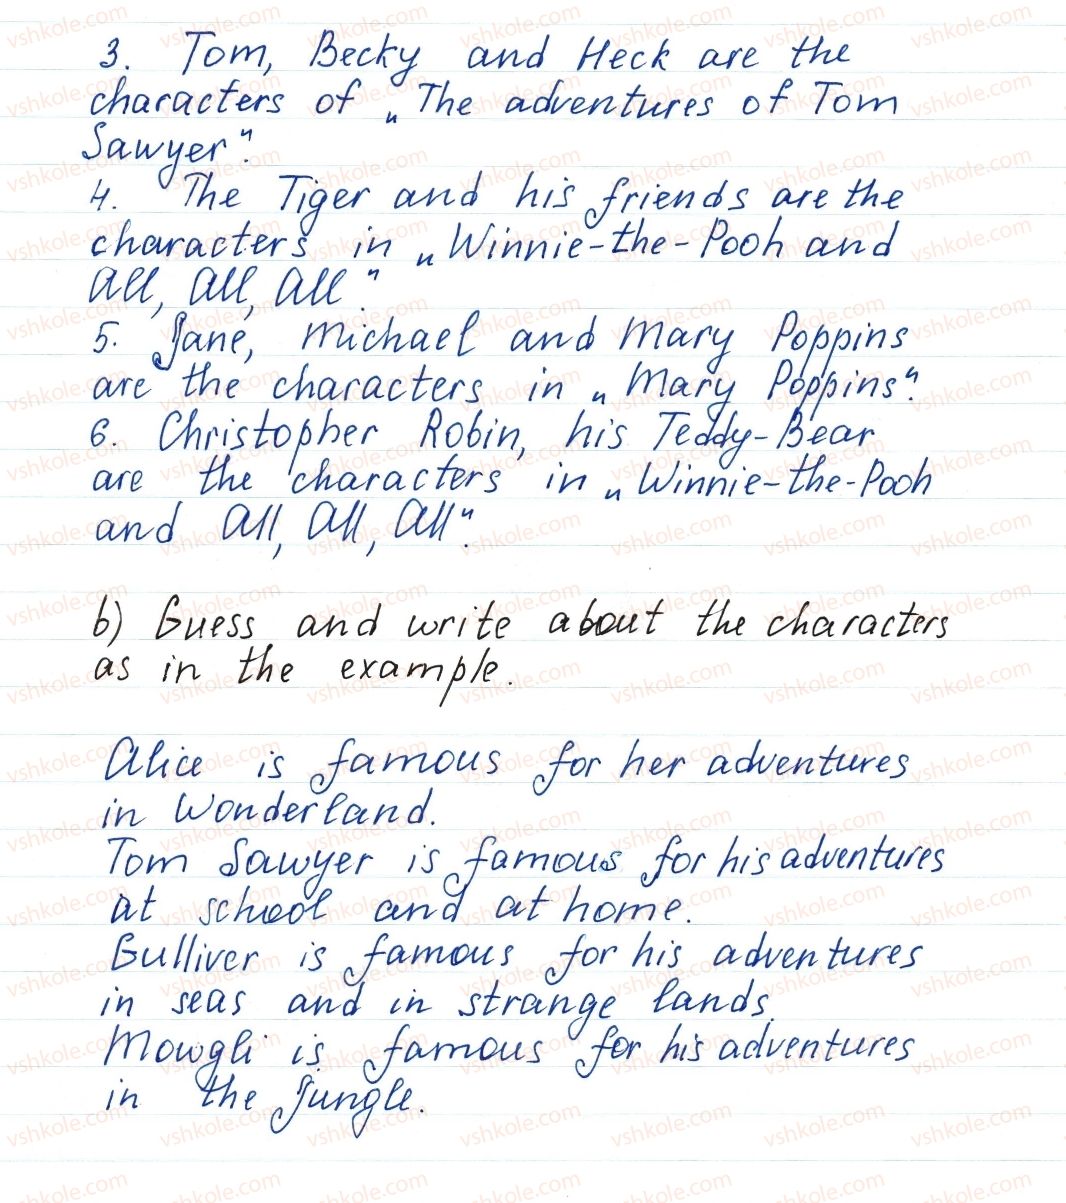 3. Tom, Becky and Heck are the
characters of „The adventures of Tom
Sawyer".
4. The Tiger and his friends are the
characters in „Winnie-the-Pooh and
All, All, All."
5. Jane, Michael and Mary Poppins
are the characters in „Mary Poppins".
6. Christopher Robin, his Teddy-Bear
are the characters in „Winnie-the-Pooh
and All, All, All".
b) Guess and write about the characters
as in the example.
Alice is famous for her adventures
in Wonderland.
Tom Sawyer is famous for his adventures
at school and at home.
Gulliver is famous for his adventures
in seas and in strange lands.
Mowgli is famous for his adventures
in the Jungle.
vshkole.com